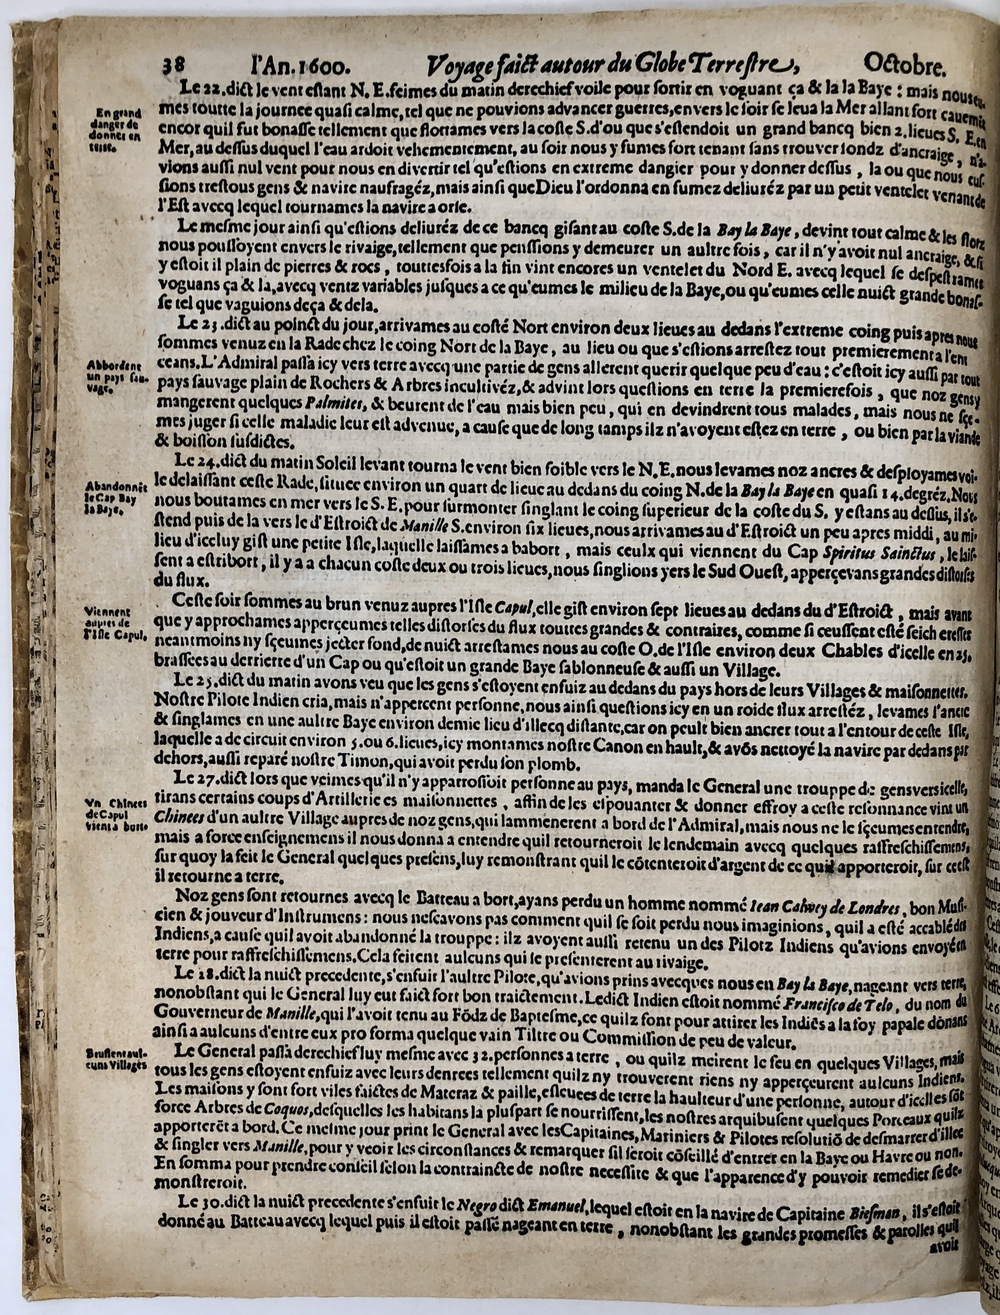 38 l'An. 1600. Voyage faict autour du Globe Terreſtre, Octobre.
Le 22. dict le vent eſtant N. E. feimes du matin derechief voile pour ſortir en voguant ça & la la Baye : mais nous
En grand danger de donner en terre.
mes toutte la journee quaſi calme, tel que ne pouvions advancer guerres, envers le ſoir ſe leua la Mer allant fort
encor quil fut bonaſſe tellement que flottames vers la coſte S. d'ou que s'eſtendoit un grand bancq bien 2. lieues S. E. en
Mer, au deſſus duquel l'eau ardoit vehementement, au ſoir nous y fumes fort tenant ſans trouver fondz d'ancraige, n'a-
vions auſſi nul vent pour nous en divertir tel qu'eſtions en extreme dangier pour y donner deſſus, la ou que nous euſ-
ſions treſtous gens & navire naufragéz, mais ainſi que Dieu l'ordonna en fumez deliuréz par un petit ventelet venant de
l'Eſt avecq lequel tournames la navire a orſe.
Le meſme jour ainſi qu'eſtions deliuréz de ce bancq giſant au coſte S. de la Bay la Baye, devint tout calme & les flotz
nous pouſſoyent envers le rivaige, tellement que penſſions y demeurer un aultre fois, car il n'y avoit nul ancraige, & ſi
y eſtoit il plain de pierres & rocs, touttesfois a la fin vint encores un ventelet du Nord E. avecq lequel ſe deſpeſtrames
voguans ça & la, avecq ventz variables juſques a ce qu'eumes le milieu de la Baye, ou qu'eumes celle nuict grande bonaſ-
ſe tel que vaguions deça & dela.
Le 23. dict au poinct du jour, arrivames au coſté Nort environ deux lieues au dedans l'extreme coing puis apres nous
ſommes venuz en la Rade chez le coing Nort de la Baye, au lieu ou que s'eſtions arreſtez tout premierement a l'ent
Abbordent un pays ſau- vage.
ceans. L'Admiral paſſa icy vers terre avecq une partie de gens allerent querir quelque peu d'eau : c'eſtoit icy auſſi par tout
pays ſauvage plain de Rochers & Arbres incultivéz, & advint lors queſtions en terre la premierefois, que noz gens y
mangerent quelques Palmites, & beurent de l'eau mais bien peu, qui en devindrent tous malades, mais nous ne ſçe-
mes juger ſi celle maladie leur eſt advenue, a cauſe que de long tamps ilz n'avoyent eſtez en terre, ou bien par la viande
& boiſſon ſuſdictes.
Le 24. dict du matin Soleil levant tourna le vent bien foible vers le N. E. nous levames noz ancres & deſployames voi-
Abandonnẽt le Cap Bay la Baye.
le delaiſſant ceſte Rade, ſituee environ un quart de lieue au dedans du coing N. de la Bay la Baye en quaſi 14. degréz. Nous
nous boutames en mer vers le S. E. pour ſurmonter ſinglant le coing ſuperieur de la coſte du S. y eſtans au deſſus, il s'e-
ſtend puis de la vers le d'Eſtroict de Manille S. environ ſix lieues, nous arrivames au d'Eſtroict un peu apres middi, au mi-
lieu d'iceluy giſt une petite Iſle, laquelle laiſſames a babort, mais ceulx qui viennent du Cap Spiritus Sainctus, le laiſ-
ſent a eſtribort, il y a a chacun coſte deux ou trois lieues, nous ſinglions vers le Sud Oueſt, apperçevans grandes diſtorſes
du flux.
Viennent aupres de l'Iſle Capul.
Ceſte ſoir ſommes au brun venuz aupres l'Iſle Capul, elle giſt environ ſept lieues au dedans du d'Eſtroict, mais avant
que y approchames apperçeumes telles diſtorſes du flux touttes grandes & contraires, comme ſi ceuſſent eſté ſeich
neantmoins ny ſçeumes jecter fond, de nuict arreſtames nous au coſte O. de l'Iſle environ deux Chables d'icelle en 25.
braſſees au derrierre d'un Cap ou qu'eſtoit un grande Baye ſablonneuſe & auſſi un Village.
Le 25. dict du matin avons veu que les gens s'eſtoyent enfuiz au dedans du pays hors de leurs Villages & maiſonnettes.
Noſtre Pilote Indien cria, mais n'appercent perſonne, nous ainſi queſtions icy en un roide flux arreſtéz, levames l'ancre
& ſinglames en une aultre Baye environ demie lieu d'illecq diſtante, car on peult bien ancrer tout a l'entour de ceſte Iſle,
laquelle a de circuit environ 5. ou 6. lieues, icy montames noſtre Canon en hault, & avõs nettoyé la navire par dedans par
dehors, auſſi reparé noſtre Timon, qui avoit perdu ſon plomb.
Le 27. dict lors que veimes qu'il n'y apparroſſoit perſonne au pays, manda le General une trouppe de gens vers icelle,
Vn Chinees de Capul vient a bort.
tirans certains coups d'Artillerie es maiſonnettes, affin de les eſpouanter & donner effroy a ceſte reſonnance vint un
Chinees d'un aultre Village aupres de noz gens, qui lammenerent a bord de l'Admiral, mais nous ne le ſçeumes entendre,
mais a force enſeignemens il nous donna a entendre quil retourneroit le lendemain avecq quelques raffreſchiſſemens,
ſur quoy la feit le General quelques preſens, luy remonſtrant quil le cõtenteroit d'argent de ce quil apporteroit, ſur ceſt
il retourne a terre.
Noz gens ſont retournes avecq le Batteau a bort, ayans perdu un homme nommé Iean Calwey de Londres, bon Muſi-
cien & jouveur d'Inſtrumens : nous neſcavons pas comment quil ſe ſoit perdu nous imaginions, quil a eſté accablé des
Indiens, a cauſe quil avoit abandonné la trouppe : ilz avoyent auſſi retenu un des Pilotz Indiens qu'avions envoyé en
terre pour raffreſchiſſemens. Cela feirent aulcuns qui ſe preſenterent au rivaige.
Le 28. dict la nuict precedente, s'enfuit l'aultre Pilote, qu'avions prins avecques nous en Bay la Baye, nageant vers terre,
nonobſtant qui le General luy eut faict fort bon traictement. Ledict Indien eſtoit nommé Franciſco de Telo, du nom du
Gouverneur de Manille, qui l'avoit tenu au Fõdz de Bapteſme, ce quilz font pour attirer les Indiẽs a la foy papale dõnans
ainſi a aulcuns d'entre eux pro forma quelque vain Tiltre ou Commiſſion de peu de valeur.
Bruſlent aul- cuns Villages
Le General paſſa derechief luy meſme avec 32. perſonnes a terre, ou quilz meirent le feu en quelques Villages, mais
tous les gens eſtoyent enfuiz avec leurs denrees tellement quilz ny trouverent riens ny apperçeurent aulcuns Indiens.
Les maiſons y ſont fort viles faictes de Materaz & paille, eſleuees de terre la haulteur d'une perſonne, autour d'icelles ſõt
force Arbres de Coquos, deſquelles les habitans la pluſpart ſe nourriſſent, les noſtres arquibuſent quelques Porceaux quilz
apporterẽt a bord. Ce meſme jour print le General avec les Capitaines, Mariniers & Pilotes reſolutiõ de deſmarrer d'illec
& ſingler vers Manille, pour y veoir les circonſtances & remarquer ſil ſeroit cõſeillé d'entrer en la Baye ou Havre ou non.
En ſomma pour prendre conſeil ſelon la contraincte de noſtre neceſſite & que l'apparence d'y pouvoir remedier ſe de-
monſtreroit.
Le 30. dict la nuict precedente s'enfuit le Negro dict Emanuel, lequel eſtoit en la navire de Capitaine Bieſman, il s'eſtoit
donné au Batteau avecq lequel puis il eſtoit paſſé nageant en terre, nonobſtant les grandes promeſſes & parolles quil
avoit